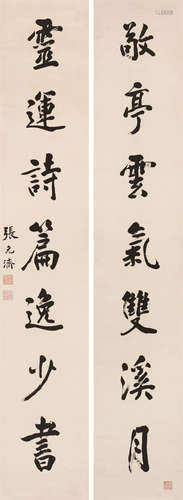 敬亭雲氣雙溪月
靈運詩篇逸少書
張元濟